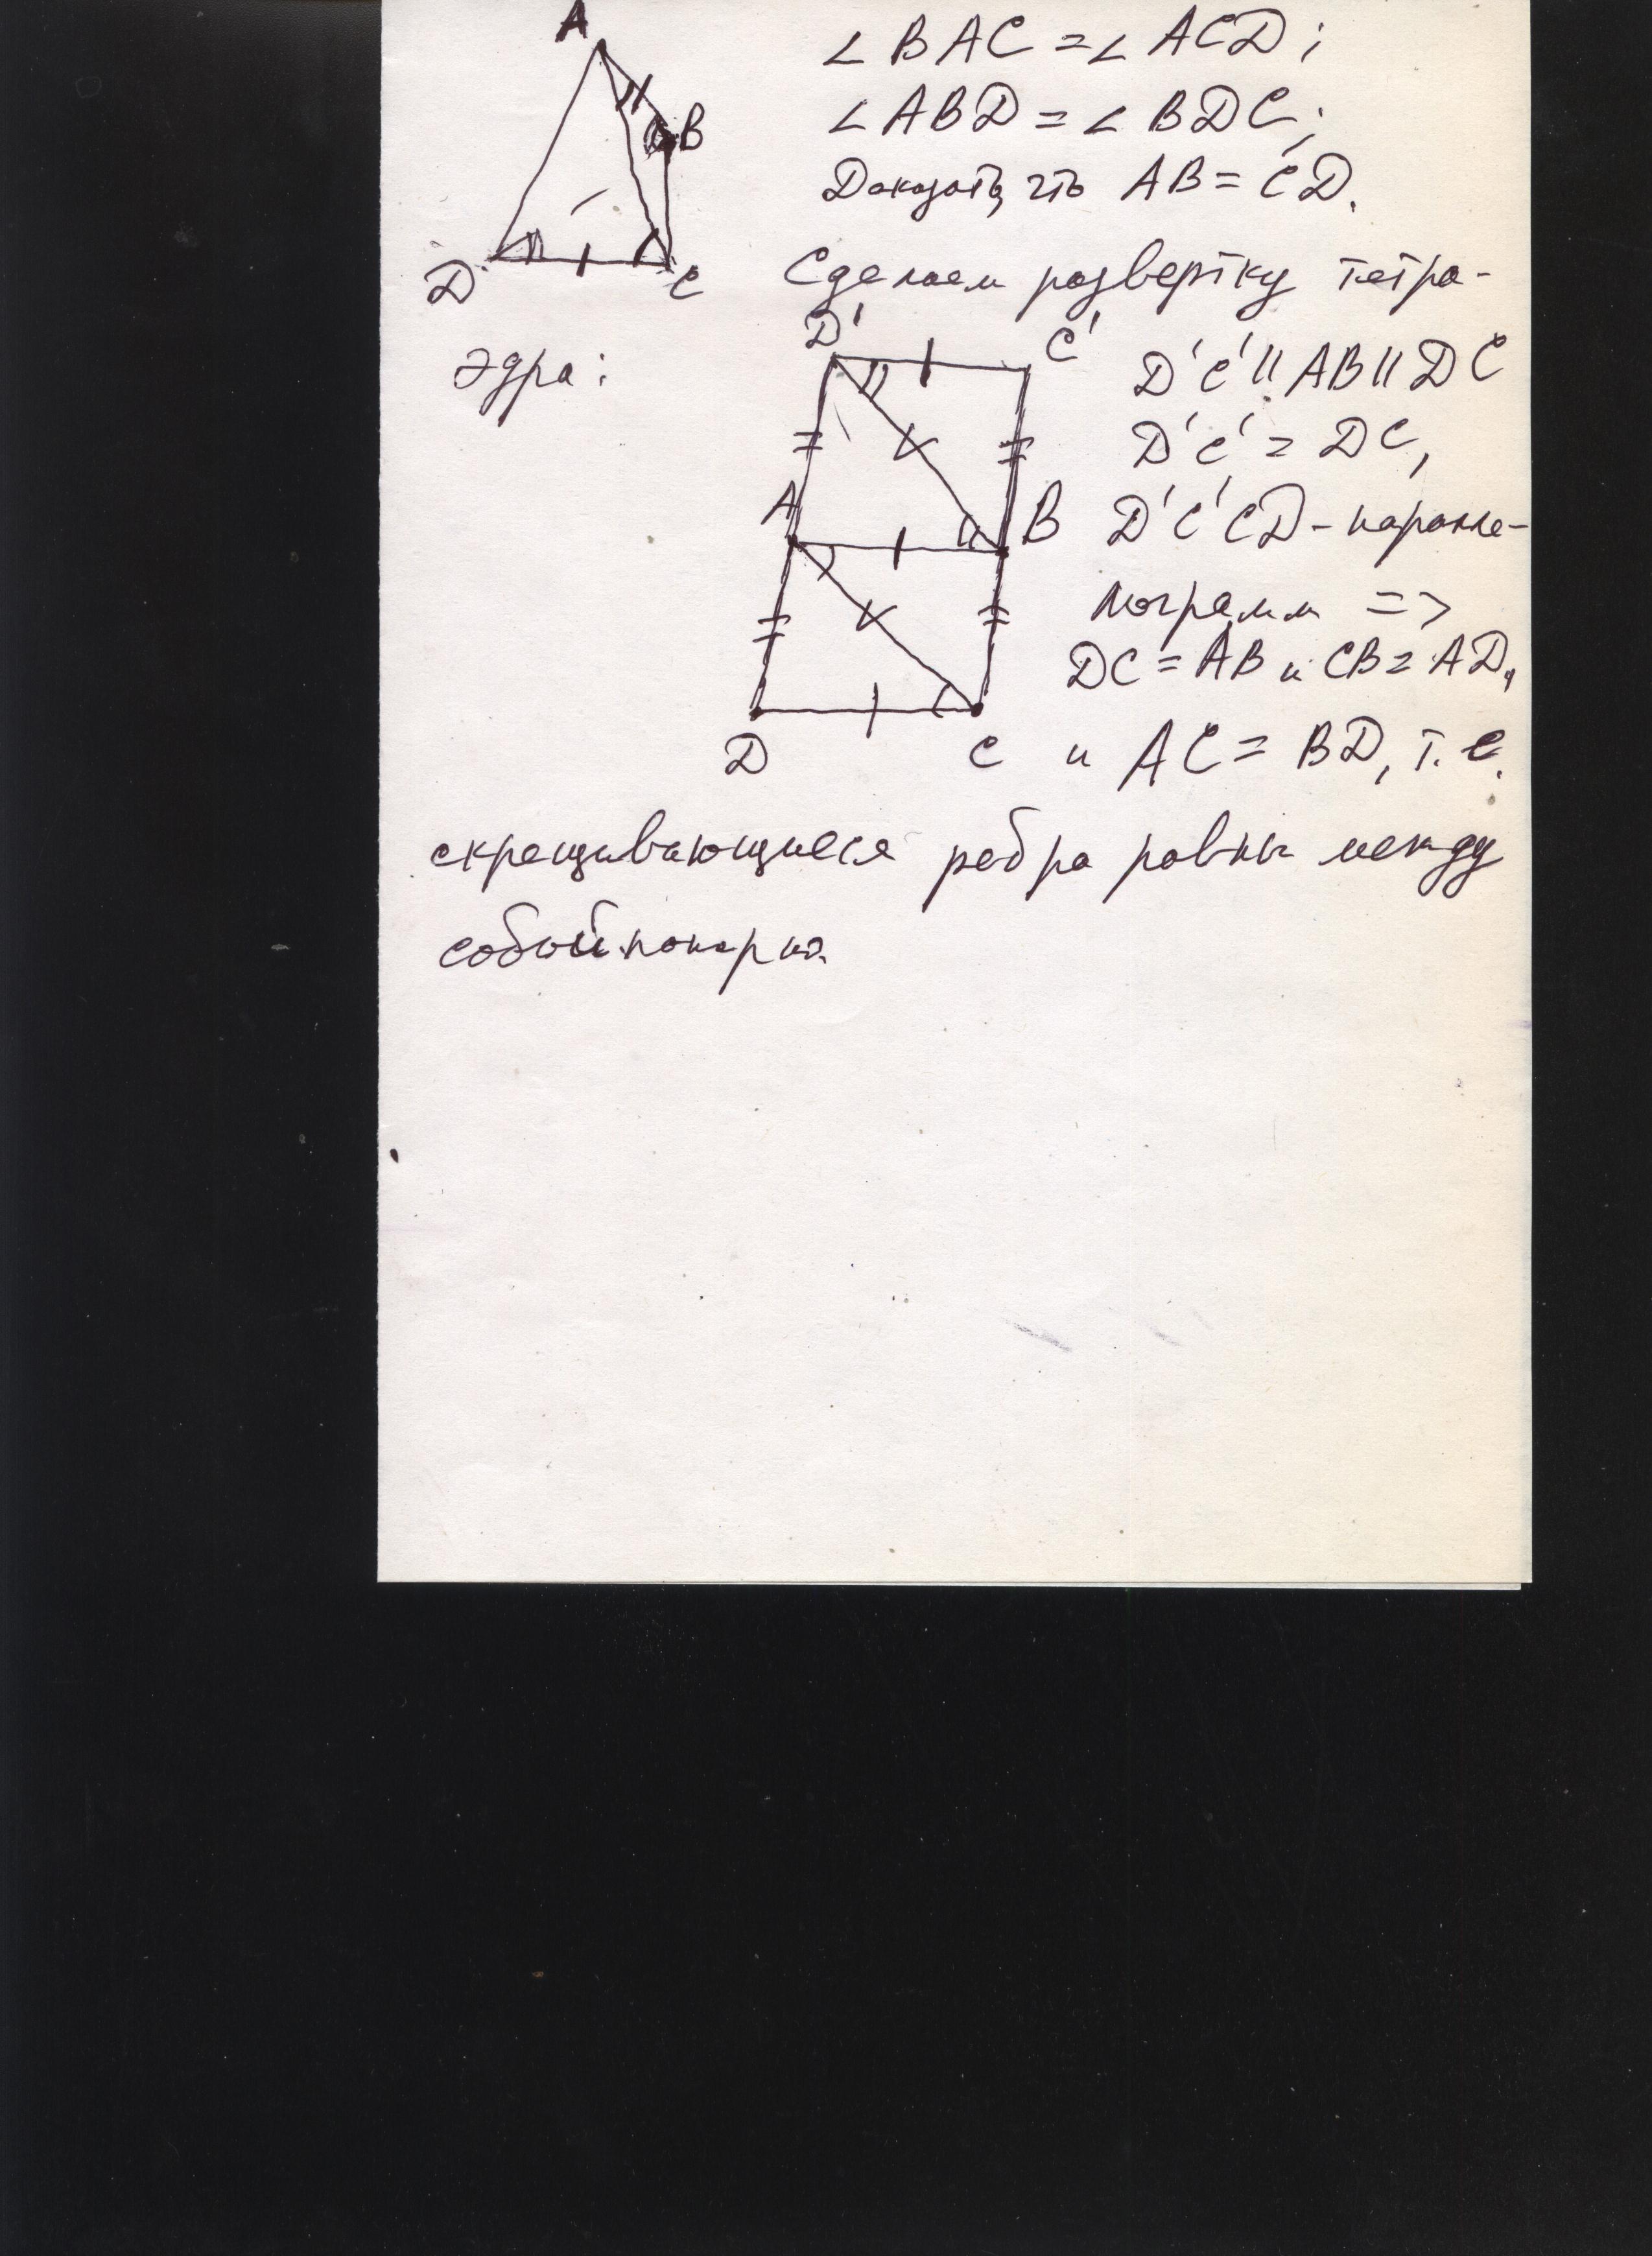 A
∠ BAC = ∠ ACD;
B
∠ ABD = ∠ BDC;
Доказать, что AB = CD.
D C
Сделаем развертку тетра-
эдра:
D' C'
D'C' || AB || DC
D'C' = DC,
A B
D'C'CD - паралле-
лограмм =>
DC = AB и CB = AD,
D C
и AC = BD, т.е.
скрещивающиеся ребра равны между
собой попарно.